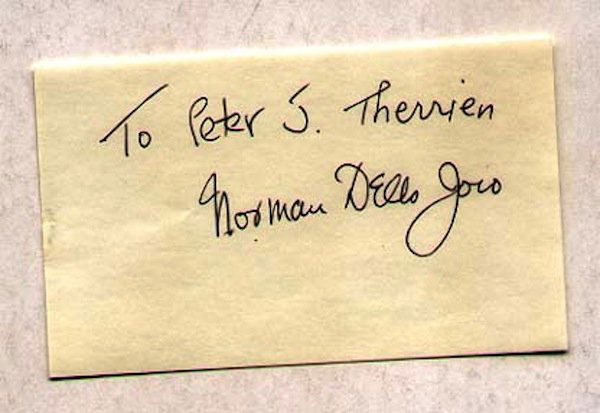 To Peter J. Therrien
Norman Dello Joio